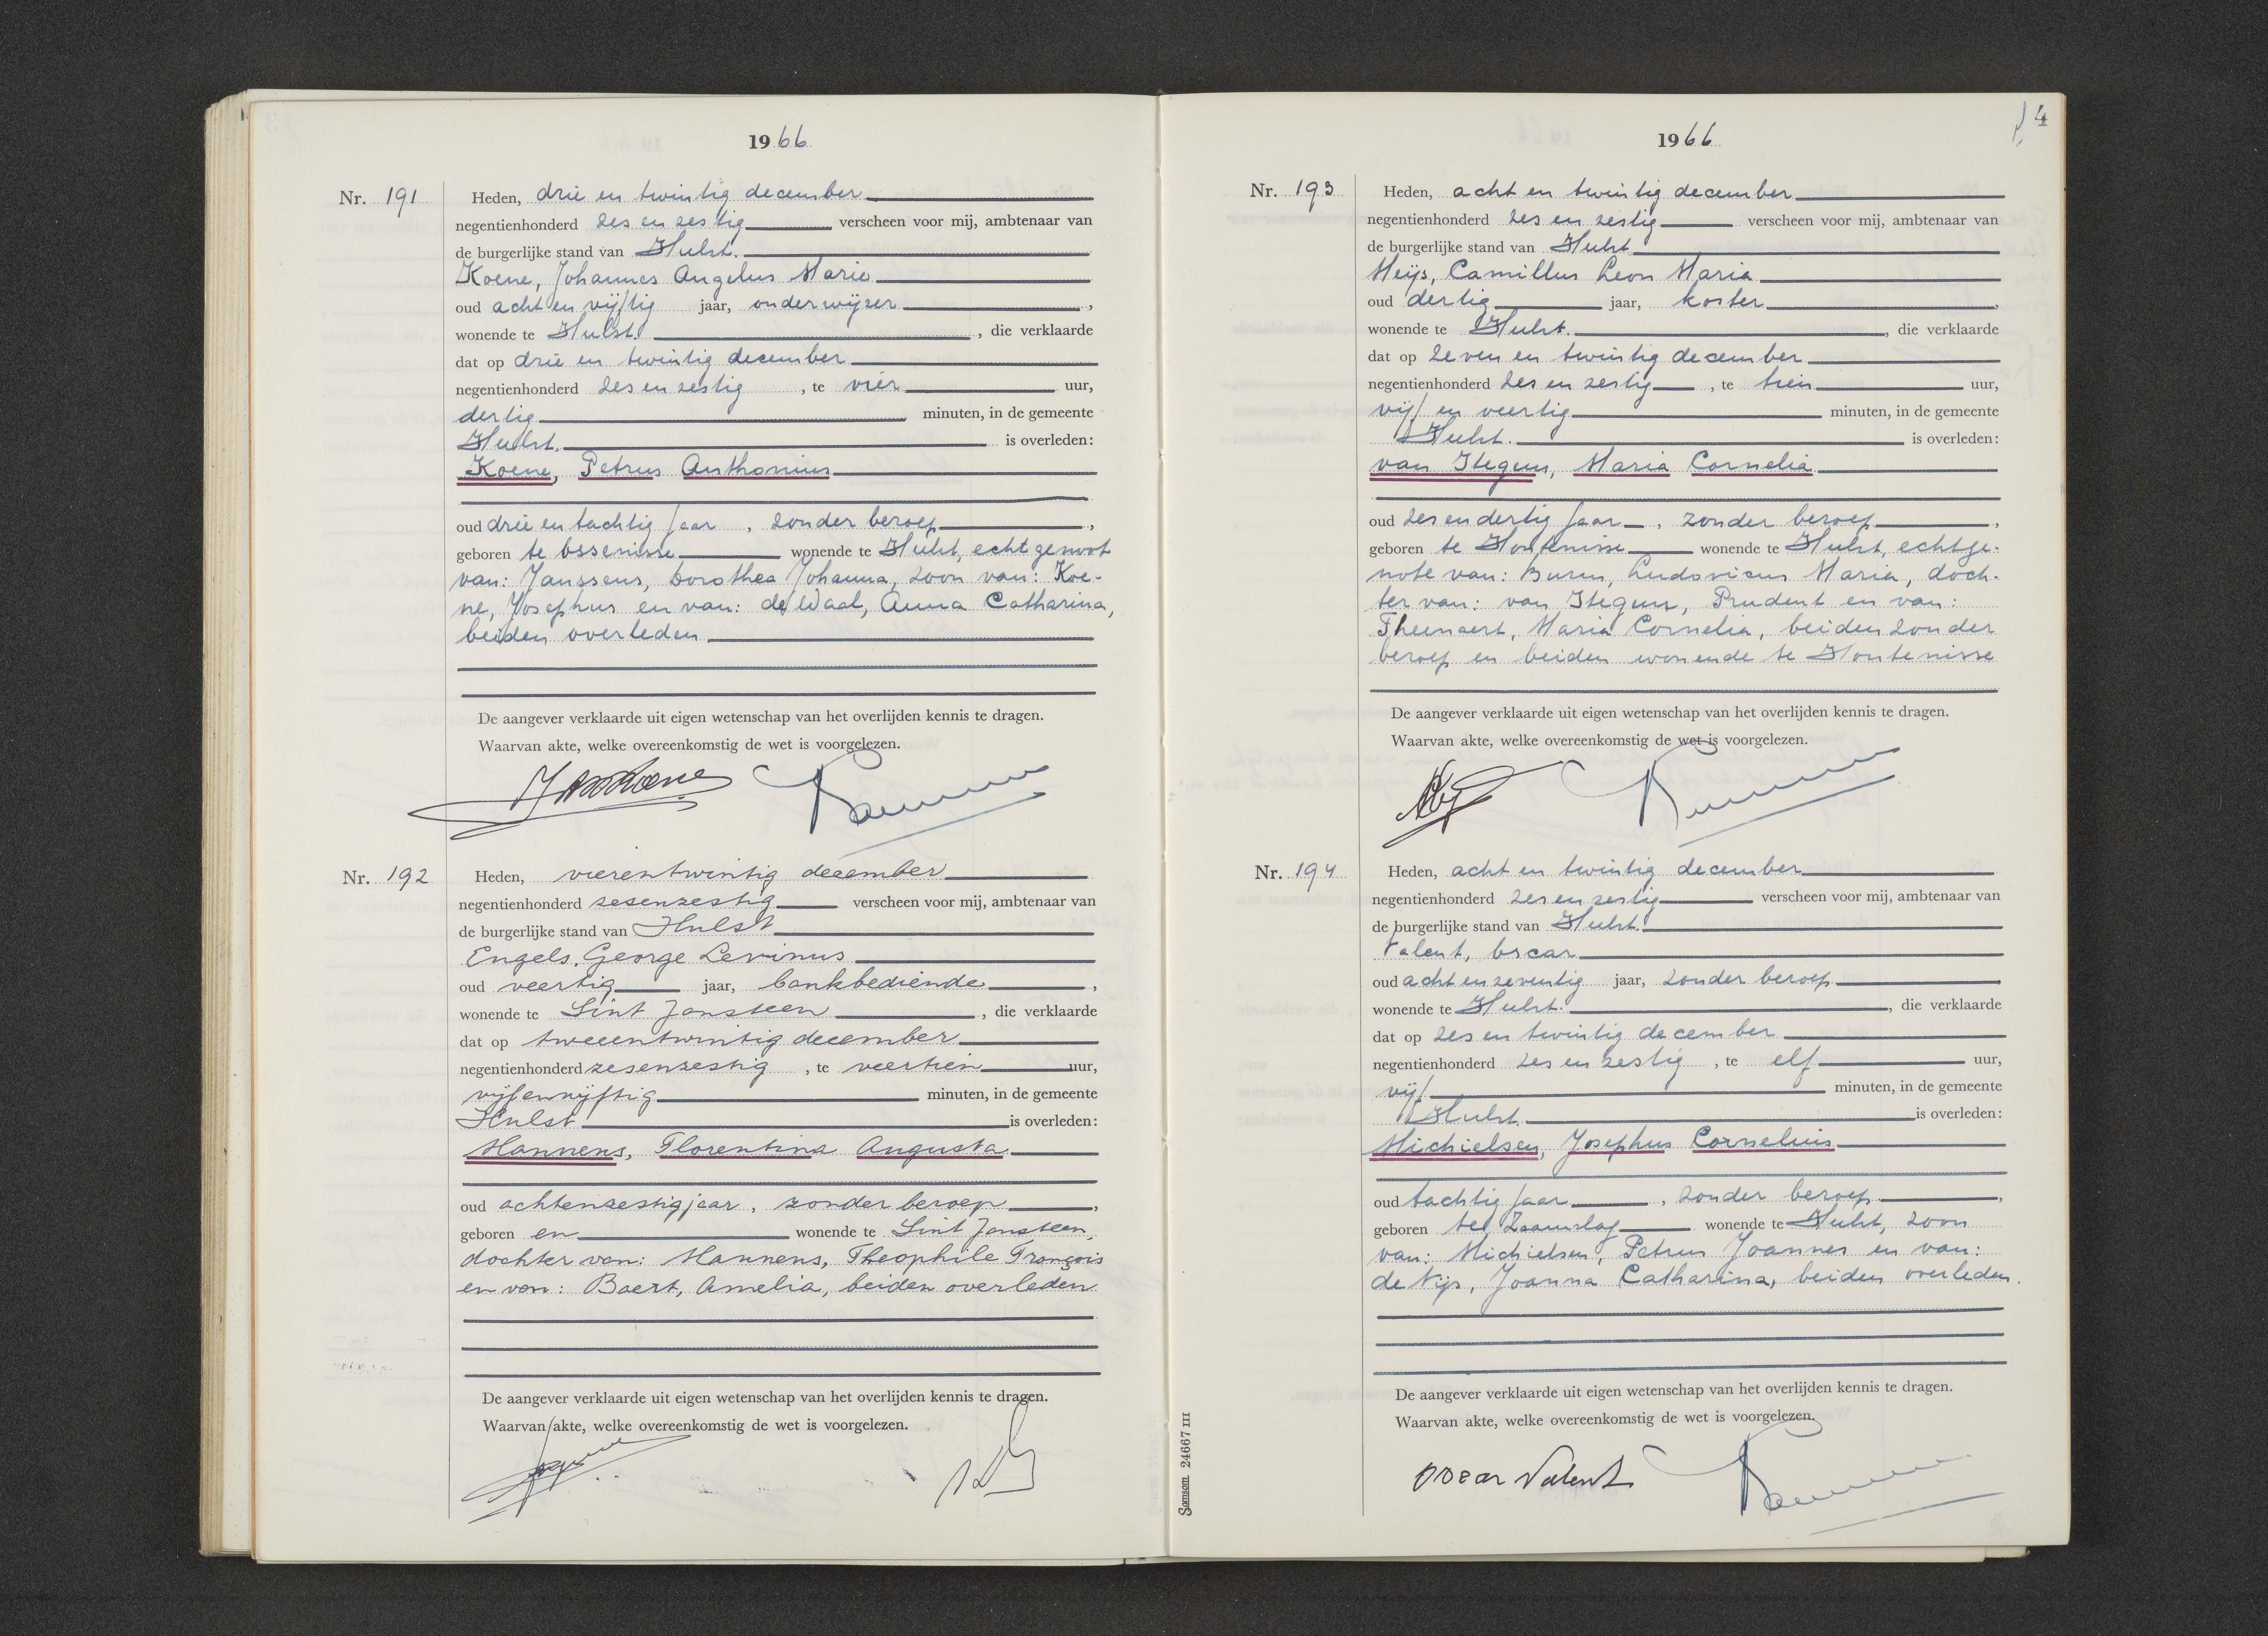 1966
Nr. 191
Heden, drie en twintig december
negentienhonderd zes en zestig verscheen voor mij, ambtenaar van
de burgerlijke stand van Hulst.
Koene, Johannes Angelus Marie
oud acht en vijftig jaar, onderwijzer,
wonende te Hulst., die verklaarde
dat op drie en twintig december
negentienhonderd zes en zestig, te vier uur,
dertig minuten, in de gemeente
Hulst. is overleden:
Koene, Petrus Anthonius
oud drie en tachtig jaar, zonder beroep,
geboren te Ossenisse wonende te Hulst, echtgenoot
van: Janssens, Dorothea Johanna, zoon van: Koe-
ne, Josephus en van: de Waal, Anna Catharina,
beiden overleden
De aangever verklaarde uit eigen wetenschap van het overlijden kennis te dragen.
Waarvan akte, welke overeenkomstig de wet is voorgelezen.
Nr. 192
Heden, vierentwintig december
negentienhonderd zesenzestig verscheen voor mij, ambtenaar van
de burgerlijke stand van Hulst
Engels, George Levinus
oud veertig jaar, bankbediende,
wonende te Sint Jansteen, die verklaarde
dat op tweeentwintig december
negentienhonderd zesenzestig, te veertien uur,
vijfenvijftig minuten, in de gemeente
Hulst is overleden:
Mannens, Florentina Augusta
oud achtenzestig jaar, zonder beroep,
geboren en wonende te Sint Jansteen,
dochter van: Mannens, Theophile François
en van: Baert, Amelia, beiden overleden
De aangever verklaarde uit eigen wetenschap van het overlijden kennis te dragen.
Waarvan akte, welke overeenkomstig de wet is voorgelezen.
4
1966
Nr. 193
Heden, acht en twintig december
negentienhonderd zes en zestig verscheen voor mij, ambtenaar van
de burgerlijke stand van Hulst
Meijs, Camillus Leon Maria
oud dertig jaar, koster,
wonende te Hulst., die verklaarde
dat op zeven en twintig december
negentienhonderd zes en zestig, te tien uur,
vijf en veertig minuten, in de gemeente
Hulst. is overleden:
van Itegem, Maria Cornelia
oud zes en dertig jaar, zonder beroep,
geboren te Hontenisse wonende te Hulst, echtge-
note van: Buren, Ludovicus Maria, doch-
ter van: van Itegem, Prudent en van:
Theenaert, Maria Cornelia, beiden zonder
beroep en beiden wonende te Hontenisse
De aangever verklaarde uit eigen wetenschap van het overlijden kennis te dragen.
Waarvan akte, welke overeenkomstig de wet is voorgelezen.
Nr. 194
Heden, acht en twintig december
negentienhonderd zes en zestig verscheen voor mij, ambtenaar van
de burgerlijke stand van Hulst.
Valent, Oscar
oud acht en zeventig jaar, zonder beroep
wonende te Hulst., die verklaarde
dat op zes en twintig december
negentienhonderd zes en zestig, te elf uur,
vijf minuten, in de gemeente
Hulst. is overleden:
Michielsen, Josephus Cornelius
oud tachtig jaar, zonder beroep,
geboren te Zaamslag wonende te Hulst, zoon
van: Michielsen, Petrus Joannes en van:
de Nijs, Joanna Catharina, beiden overleden.
De aangever verklaarde uit eigen wetenschap van het overlijden kennis te dragen.
Waarvan akte, welke overeenkomstig de wet is voorgelezen.
Oscar Valent
Samsom 24667 III